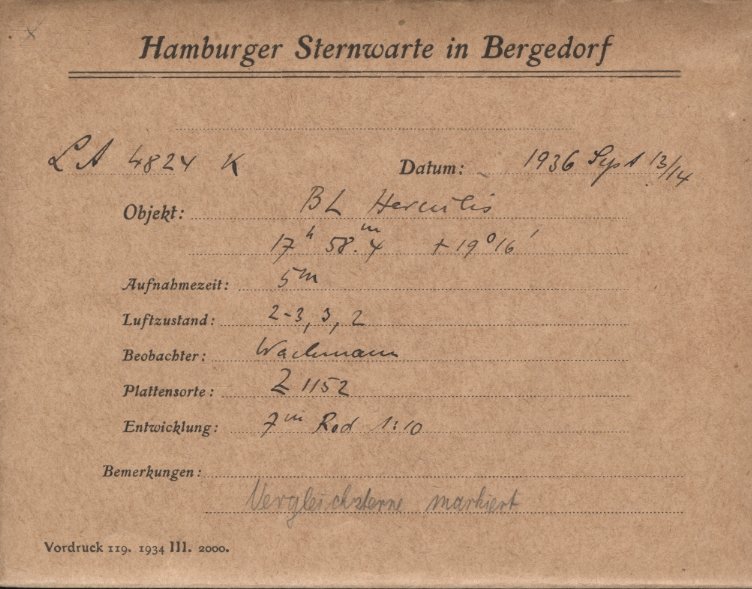 Hamburger Sternwarte in Bergedorf
LA 4824 K Datum: 1936 Sept 13/14
Objekt: BL Herculis
17h 58.m4 +19°16'
Aufnahmezeit: 5m
Luftzustand: 2-3, 3, 2
Beobachter: Wachmann
Plattensorte: Z 1152
Entwicklung: 7m Rod 1:10
Bemerkungen:
Vergleichsterne markiert
Vordruck 119. 1934 III. 2000.